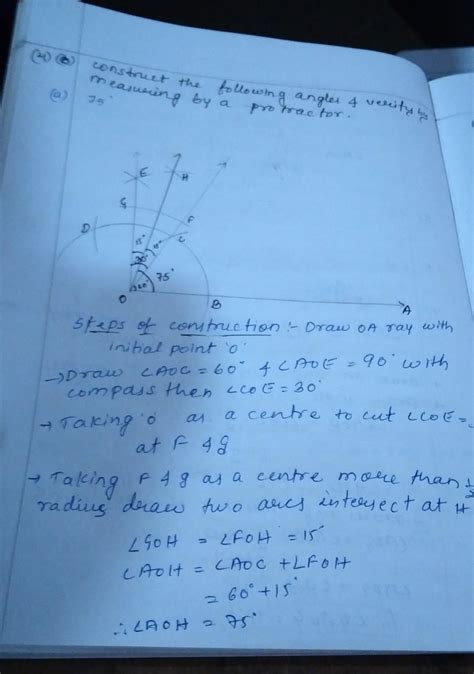 (4) construct the following angles & verify by
measuring by a protractor.
(a) 75°
E
H
G
F
D
C
15°
15°
30°
75°
60°
O
B
A
Steps of construction :- Draw OA ray with
initial point 'O'
→ Draw ∠AOC = 60° & ∠AOE = 90° with
compass then ∠COE = 30°
→ Taking O as a centre to cut ∠COE =
at F & g
→ Taking F & g as a centre more than 1/2
radius draw two arcs intersect at H
∠GOH = ∠FOH = 15°
∠AOH = ∠AOC + ∠FOH
= 60° + 15°
∴ ∠AOH = 75°